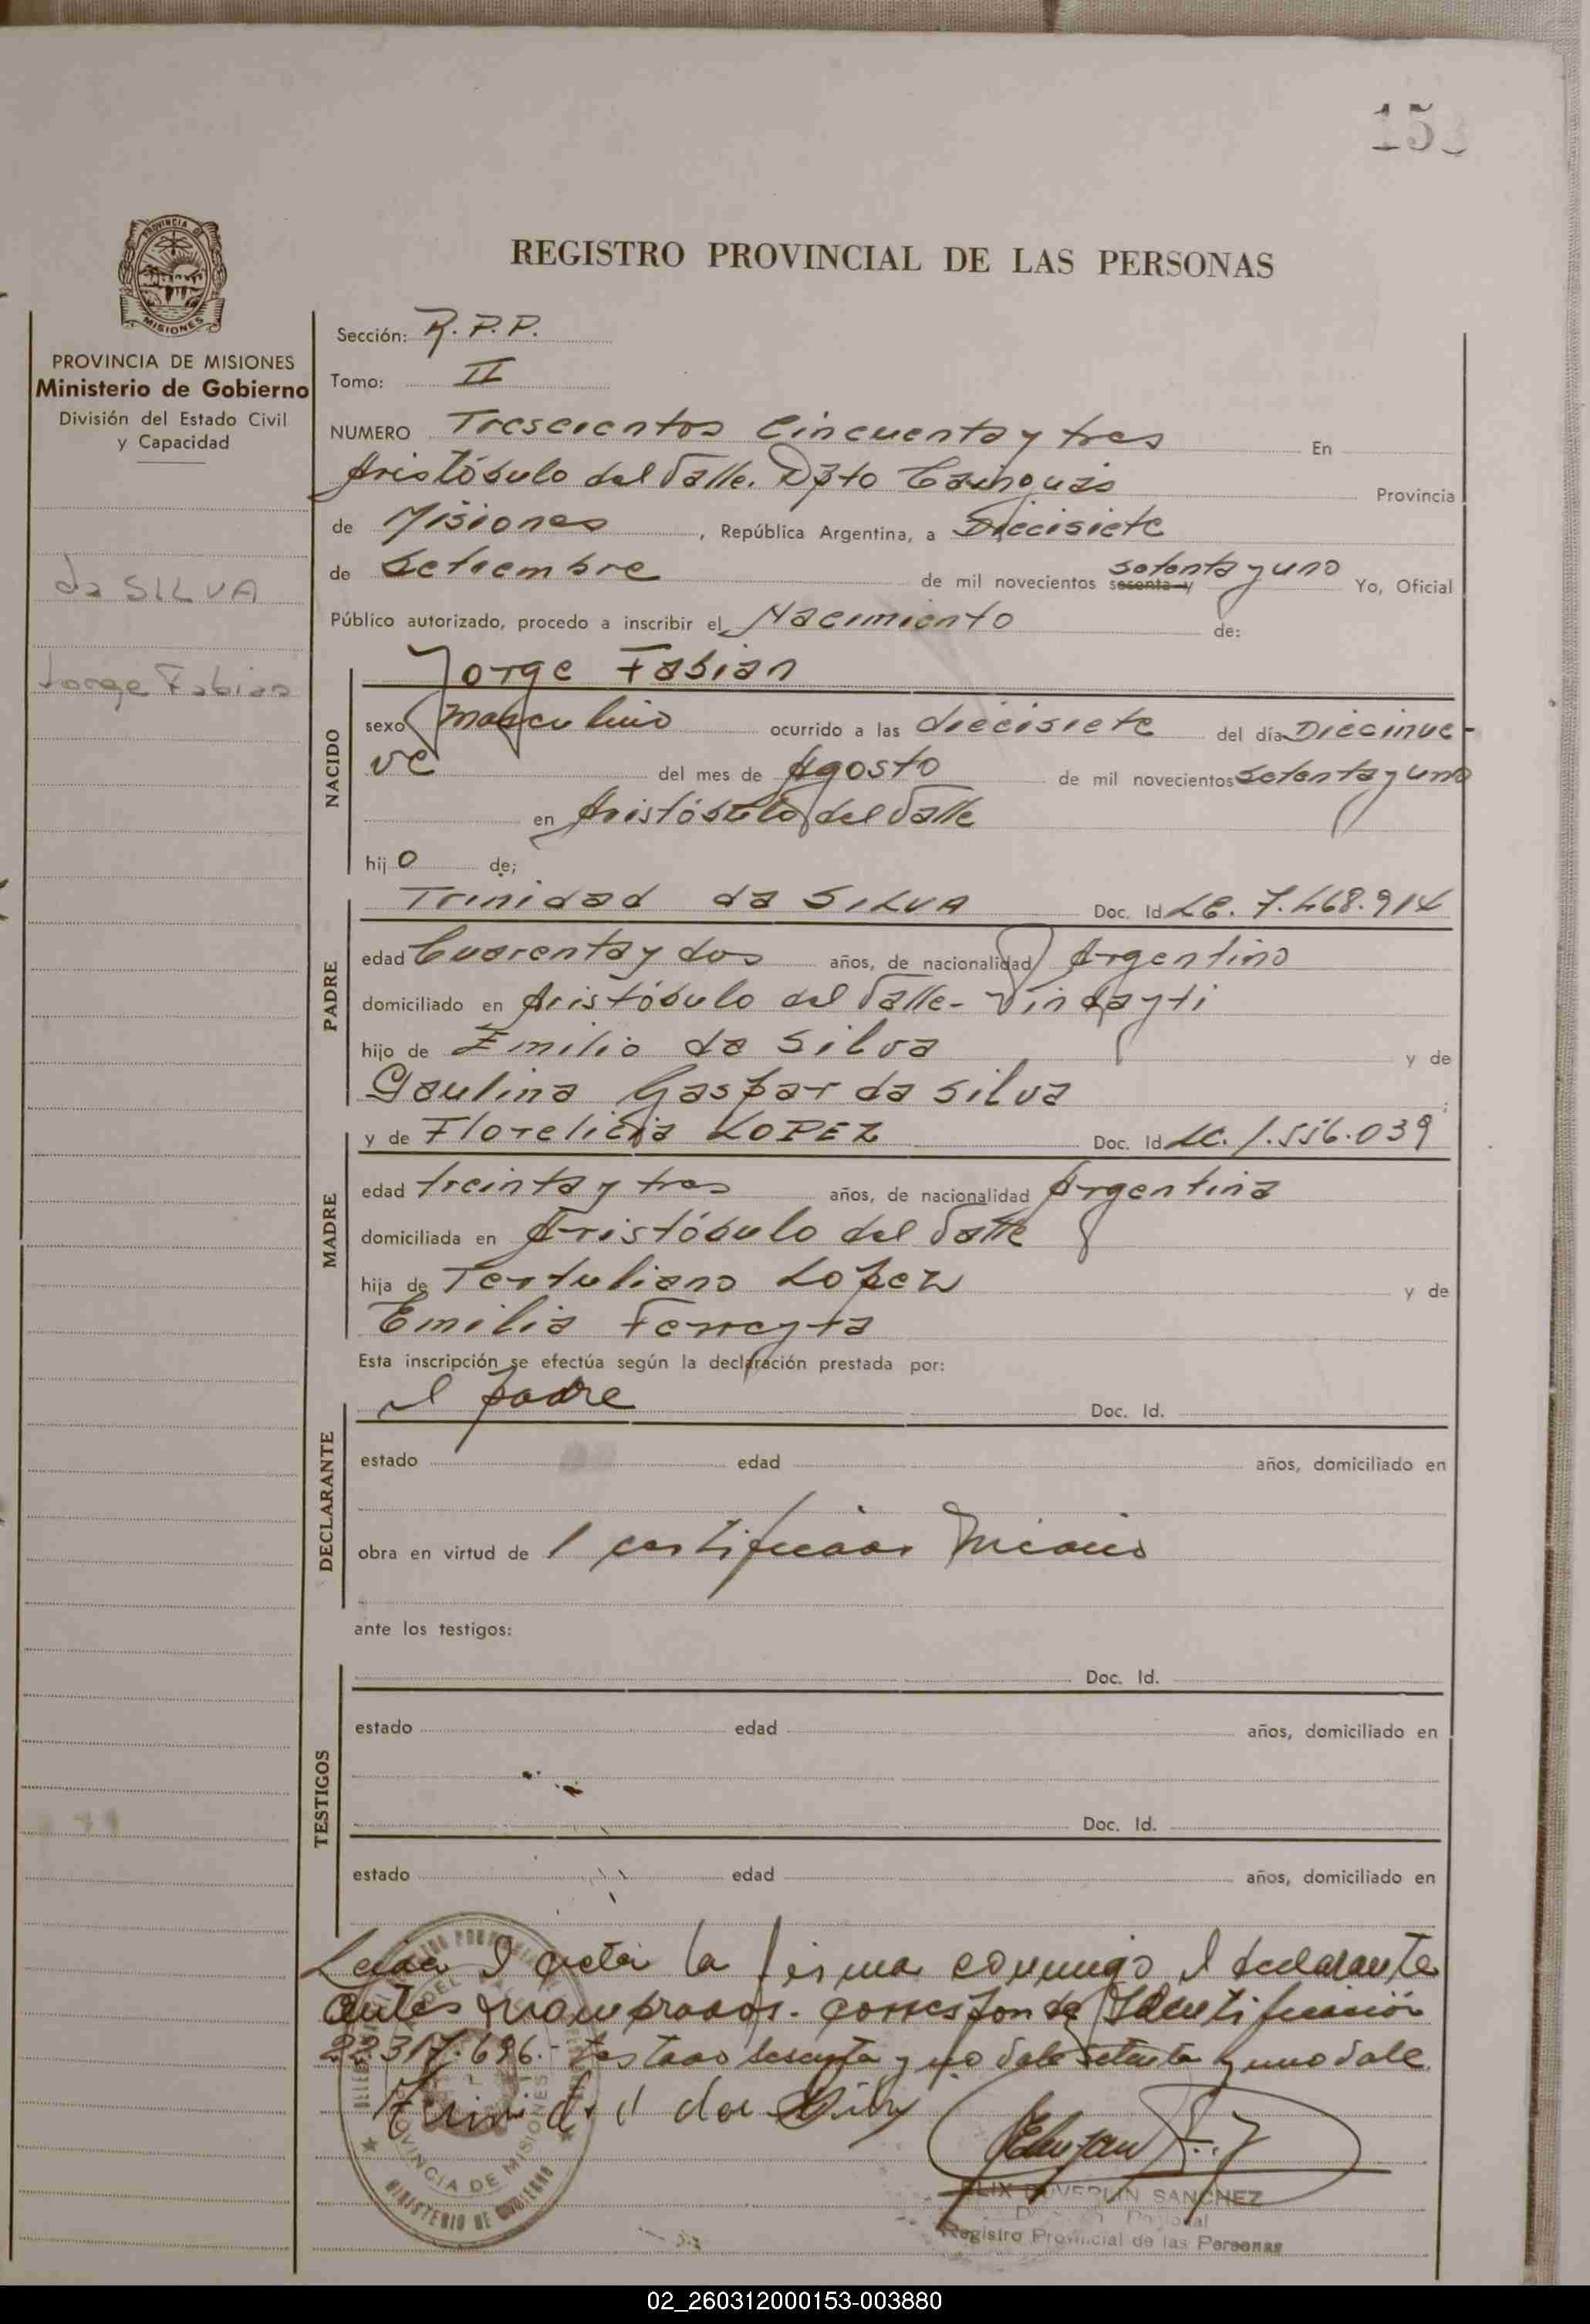 153
REGISTRO PROVINCIAL DE LAS PERSONAS
PROVINCIA DE
MISIONES
PROVINCIA DE MISIONES
Ministerio de Gobierno
División del Estado Civil
y Capacidad
da SILVA
Jorge Fabian
Sección: R. P. P.
Tomo: II
NUMERO Trescientos Cincuenta y tres En
Aristóbulo del Valle. Dpto Cainguás Provincia
de Misiones, República Argentina, a Diecisiete
de Setiembre de mil novecientos sesenta y setenta y uno Yo, Oficial
Público autorizado, procedo a inscribir el Nacimiento de:
NACIDO
Jorge Fabian
sexo masculino ocurrido a las diecisiete del día Diecinue-
ve del mes de Agosto de mil novecientos setenta y uno
en Aristóbulo del Valle
hijo de;
PADRE
Trinidad da SILVA Doc. Id. LE. 7.468.914
edad Cuarenta y dos años, de nacionalidad Argentino
domiciliado en Aristóbulo del Valle-
hijo de Emilio da Silva y de
Paulina Gaspar da Silva;
MADRE
y de Florelicia LOPEZ Doc. Id. LC. 1.556.039
edad treinta y tres años, de nacionalidad Argentina
domiciliada en Aristóbulo del Valle
hija de Tertuliano Lopez y de
Emilia Ferreyra
Esta inscripción se efectúa según la declaración prestada por:
DECLARANTE
el padre Doc. Id.
estado edad años, domiciliado en
obra en virtud de
ante los testigos:
TESTIGOS
Doc. Id.
estado edad años, domiciliado en
Doc. Id.
estado edad años, domiciliado en
Leida el acta la firma conmigo el declarante
antes nombrados. corresponde Identificación
22.317.696.- testado sesenta y no vale setenta y uno vale
Trinidad da Silv
PROVINCIA DE MISIONES
MINISTERIO DE GOBIERNO
SANCHEZ
Registro Provincial de las Personas
02_260312000153-003880